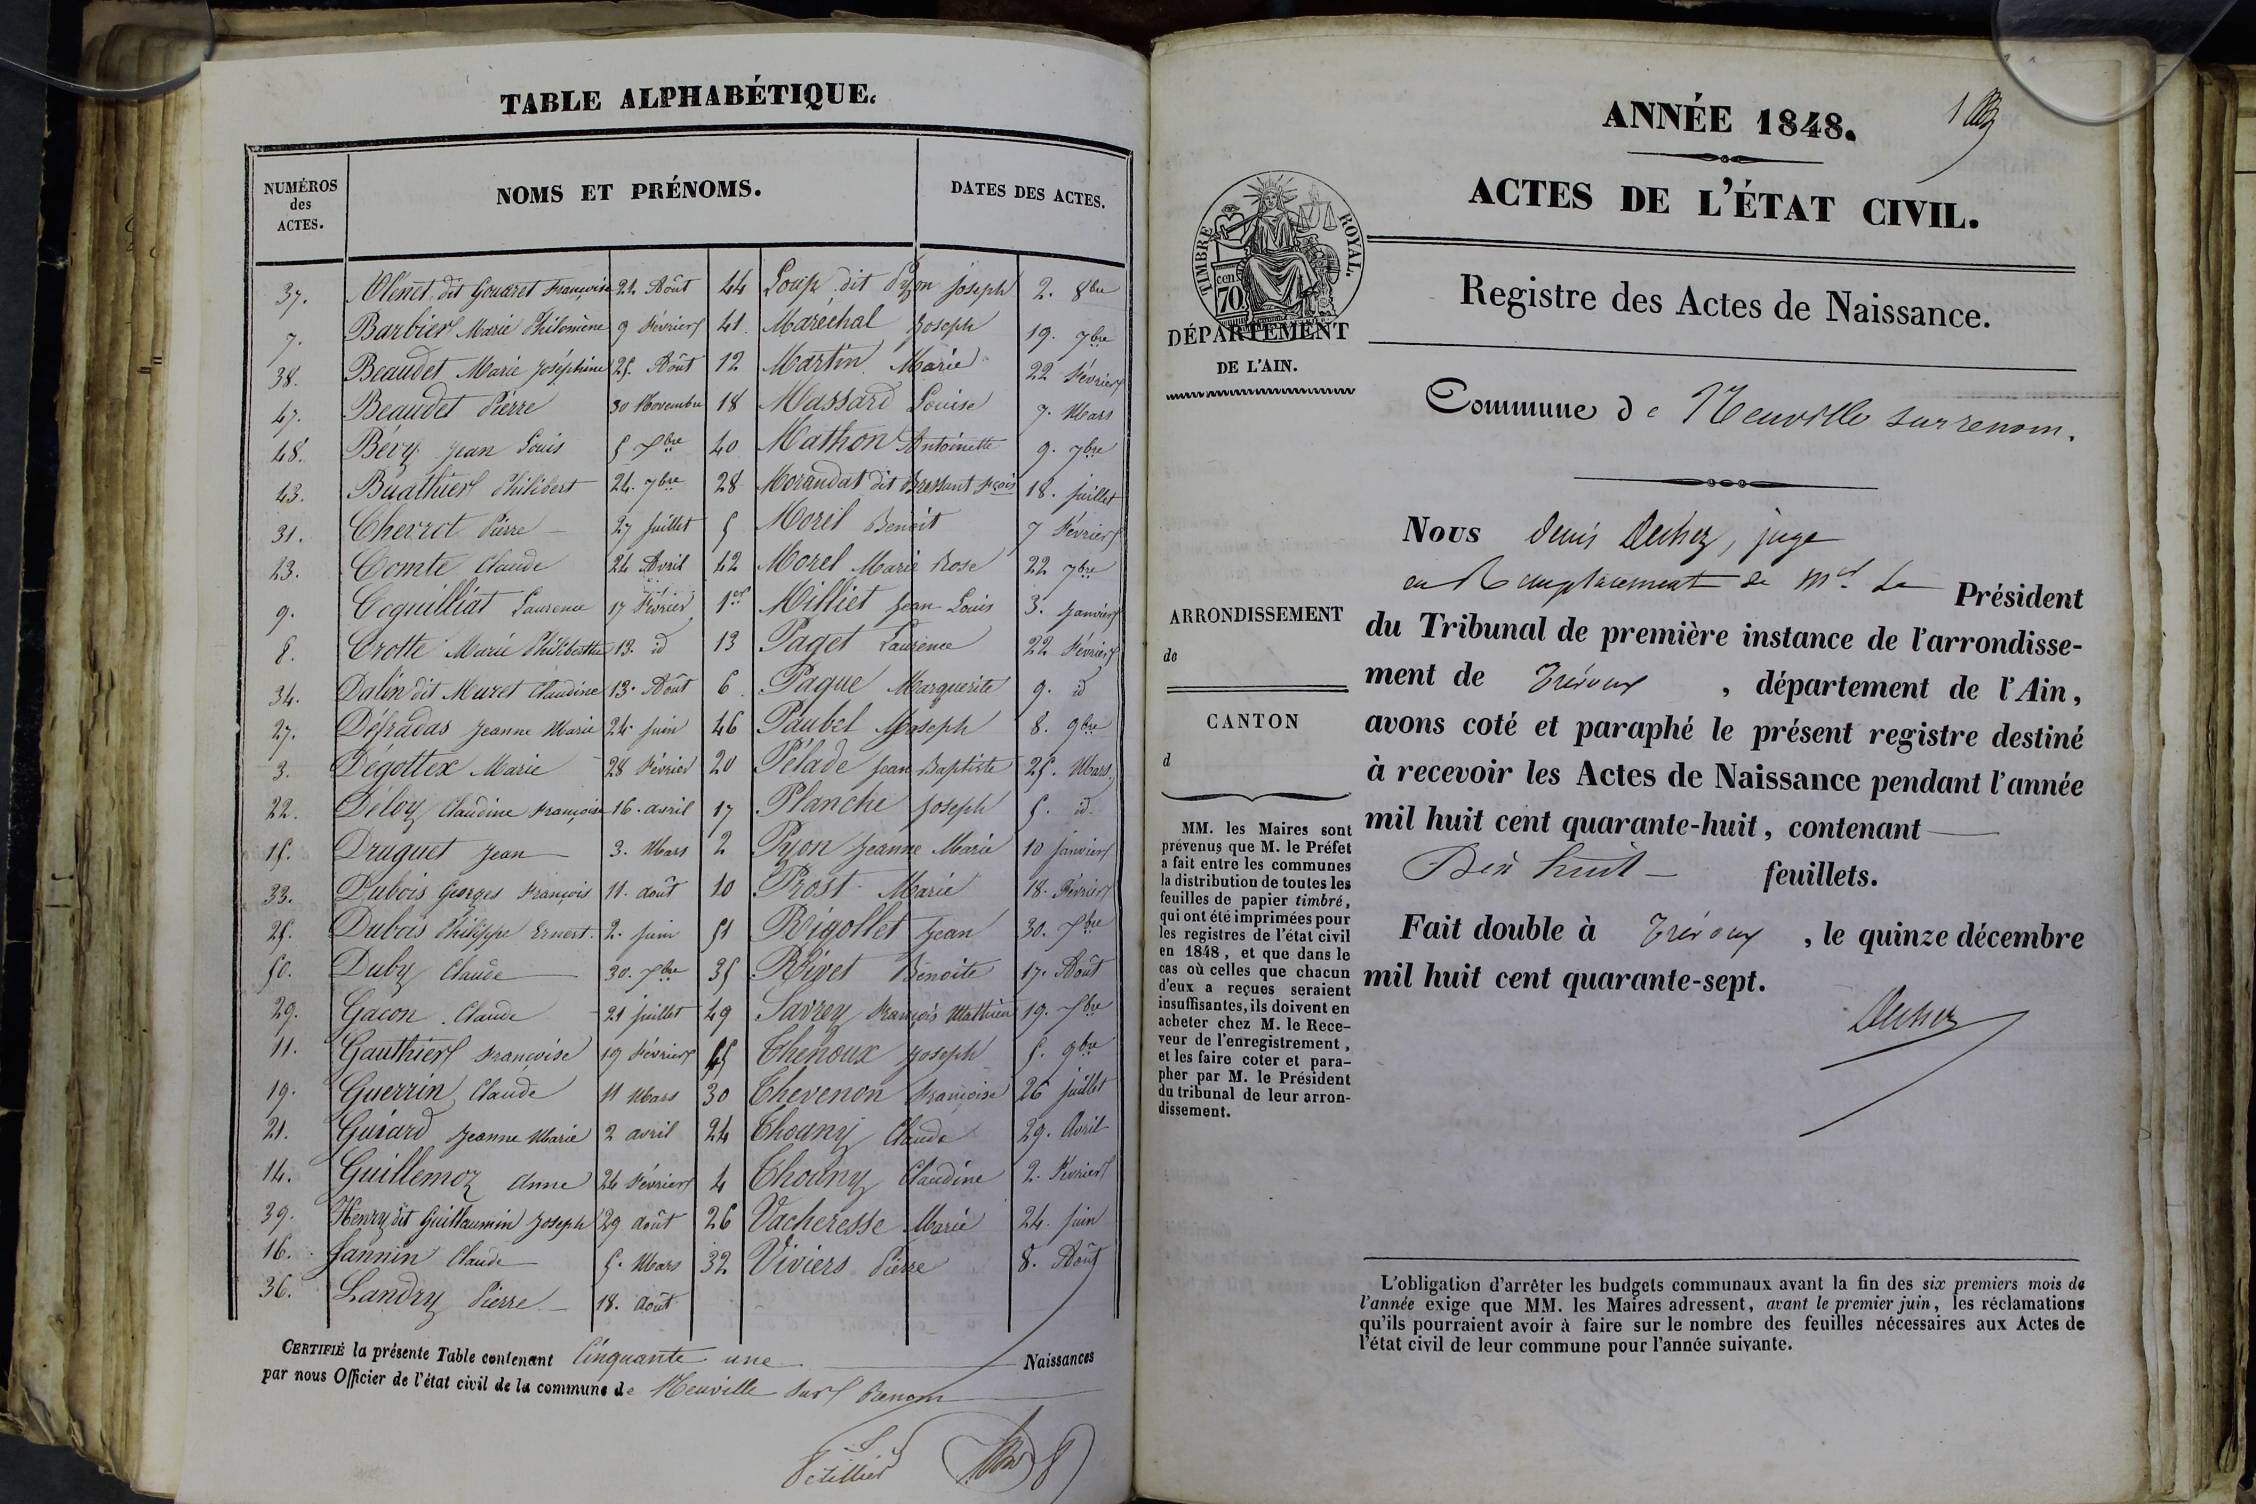 TABLE ALPHABÉTIQUE.
NUMÉROS des ACTES.
NOMS ET PRÉNOMS.
DATES DES ACTES.
37. dit Gouaret Françoise 21. Août
7. Barbier Marie Philomène 9 Février
38. Beaudet Marie Joséphine 25. Août
47. Beaudet Pierre 30 Novembre
48. Bévy Jean Louis 5 Xbre
43. Buathier Philibert 24. 7bre
31. Chevrot Pierre 27 Juillet
23. Comte Claude 24 Avril
9. Coquilliat Laurence 17 Février
8. Crotte Marie Philiberthe 13. id
34. Dalin dit Muret Claudine 13. Août
27. Défradas Jeanne Marie 24. Juin
3. Dégottex Marie 28 Février
22. Déloy Claudine Françoise 16. avril
15. Druguet Jean 3. Mars
33. Dubois Georges François 11. août
25. Dubois Philippe Ernest. 2. Juin
50. Duby Claude 30. Xbre
29. Gacon Claude 21 juillet
11. Gauthier Françoise 19 Février
19. Guerrin Claude 11 Mars
21. Guiard Jeanne Marie 2 avril
14. Guillemoz Anne 24 Février
39. Henry dit Guillaumin Joseph 29 août
16. Jannin Claude 5. Mars
36. Landry Pierre 18. août
44 Loup dit Pyon Joseph 2. 8bre
41. Maréchal Joseph 19. 7bre
12 Martin Marie 22 Février
18 Massard Louise 7. Mars
40 Mathon Antoinette 9. 7bre
28 Morandat dit Bressant fçois 18. juillet
5 Moril Benoit 7 Février
42 Morel Marie Rose 22 7bre
1er Milliet Jean Louis 3. Janvier
13 Paget Laurence 22 Février
6 Paque Marguerite 9. id
46 Paubel Joseph 8. 9bre
20 Pélade Jean Baptiste 25. Mars
17 Planche Joseph 5. id
2 Pyon Jeanne Marie 10 janvier
10 Prost Marie 18. Février
51 Rigollet Jean 30. Xbre
35 Rivet Benoite 17. Août
49 Savrey François Mathieu 19. Xbre
45 Thenoux Joseph 5. 9bre
30 Thevenon Françoise 26 juillet
24 Thouny Claude 29. Avril
4 Thouny Claudine 2. Février
26 Vacheresse Marie 24. juin
32 Viviers Pierre 8. Août
CERTIFIÉ la présente Table contenant Cinquante une Naissances
par nous Officier de l'état civil de la commune de Neuville sur Renom
ANNÉE 1848.
1
ACTES DE L'ÉTAT CIVIL.
TIMBRE ROYAL.
cen 70
DÉPARTEMENT
DE L'AIN.
Registre des Actes de Naissance.
Commune de Neuville sur renom.
ARRONDISSEMENT
de
CANTON
d
MM. les Maires sont
prévenus que M. le Préfet
a fait entre les communes
la distribution de toutes les
feuilles de papier timbré,
qui ont été imprimées pour
les registres de l'état civil
en 1848, et que dans le
cas où celles que chacun
d'eux a reçues seraient
insuffisantes, ils doivent en
acheter chez M. le Rece-
veur de l'enregistrement,
et les faire coter et para-
pher par M. le Président
du tribunal de leur arron-
dissement.
Nous Denis Duchez, juge
en Remplacement de Mr. Le Président
du Tribunal de première instance de l'arrondisse-
ment de Trévoux, département de l'Ain,
avons coté et paraphé le présent registre destiné
à recevoir les Actes de Naissance pendant l'année
mil huit cent quarante-huit, contenant
Dix huit feuillets.
Fait double à Trévoux, le quinze décembre
mil huit cent quarante-sept.
Duchez
L'obligation d'arrêter les budgets communaux avant la fin des six premiers mois de
l'année exige que MM. les Maires adressent, avant le premier juin, les réclamations
qu'ils pourraient avoir à faire sur le nombre des feuilles nécessaires aux Actes de
l'état civil de leur commune pour l'année suivante.